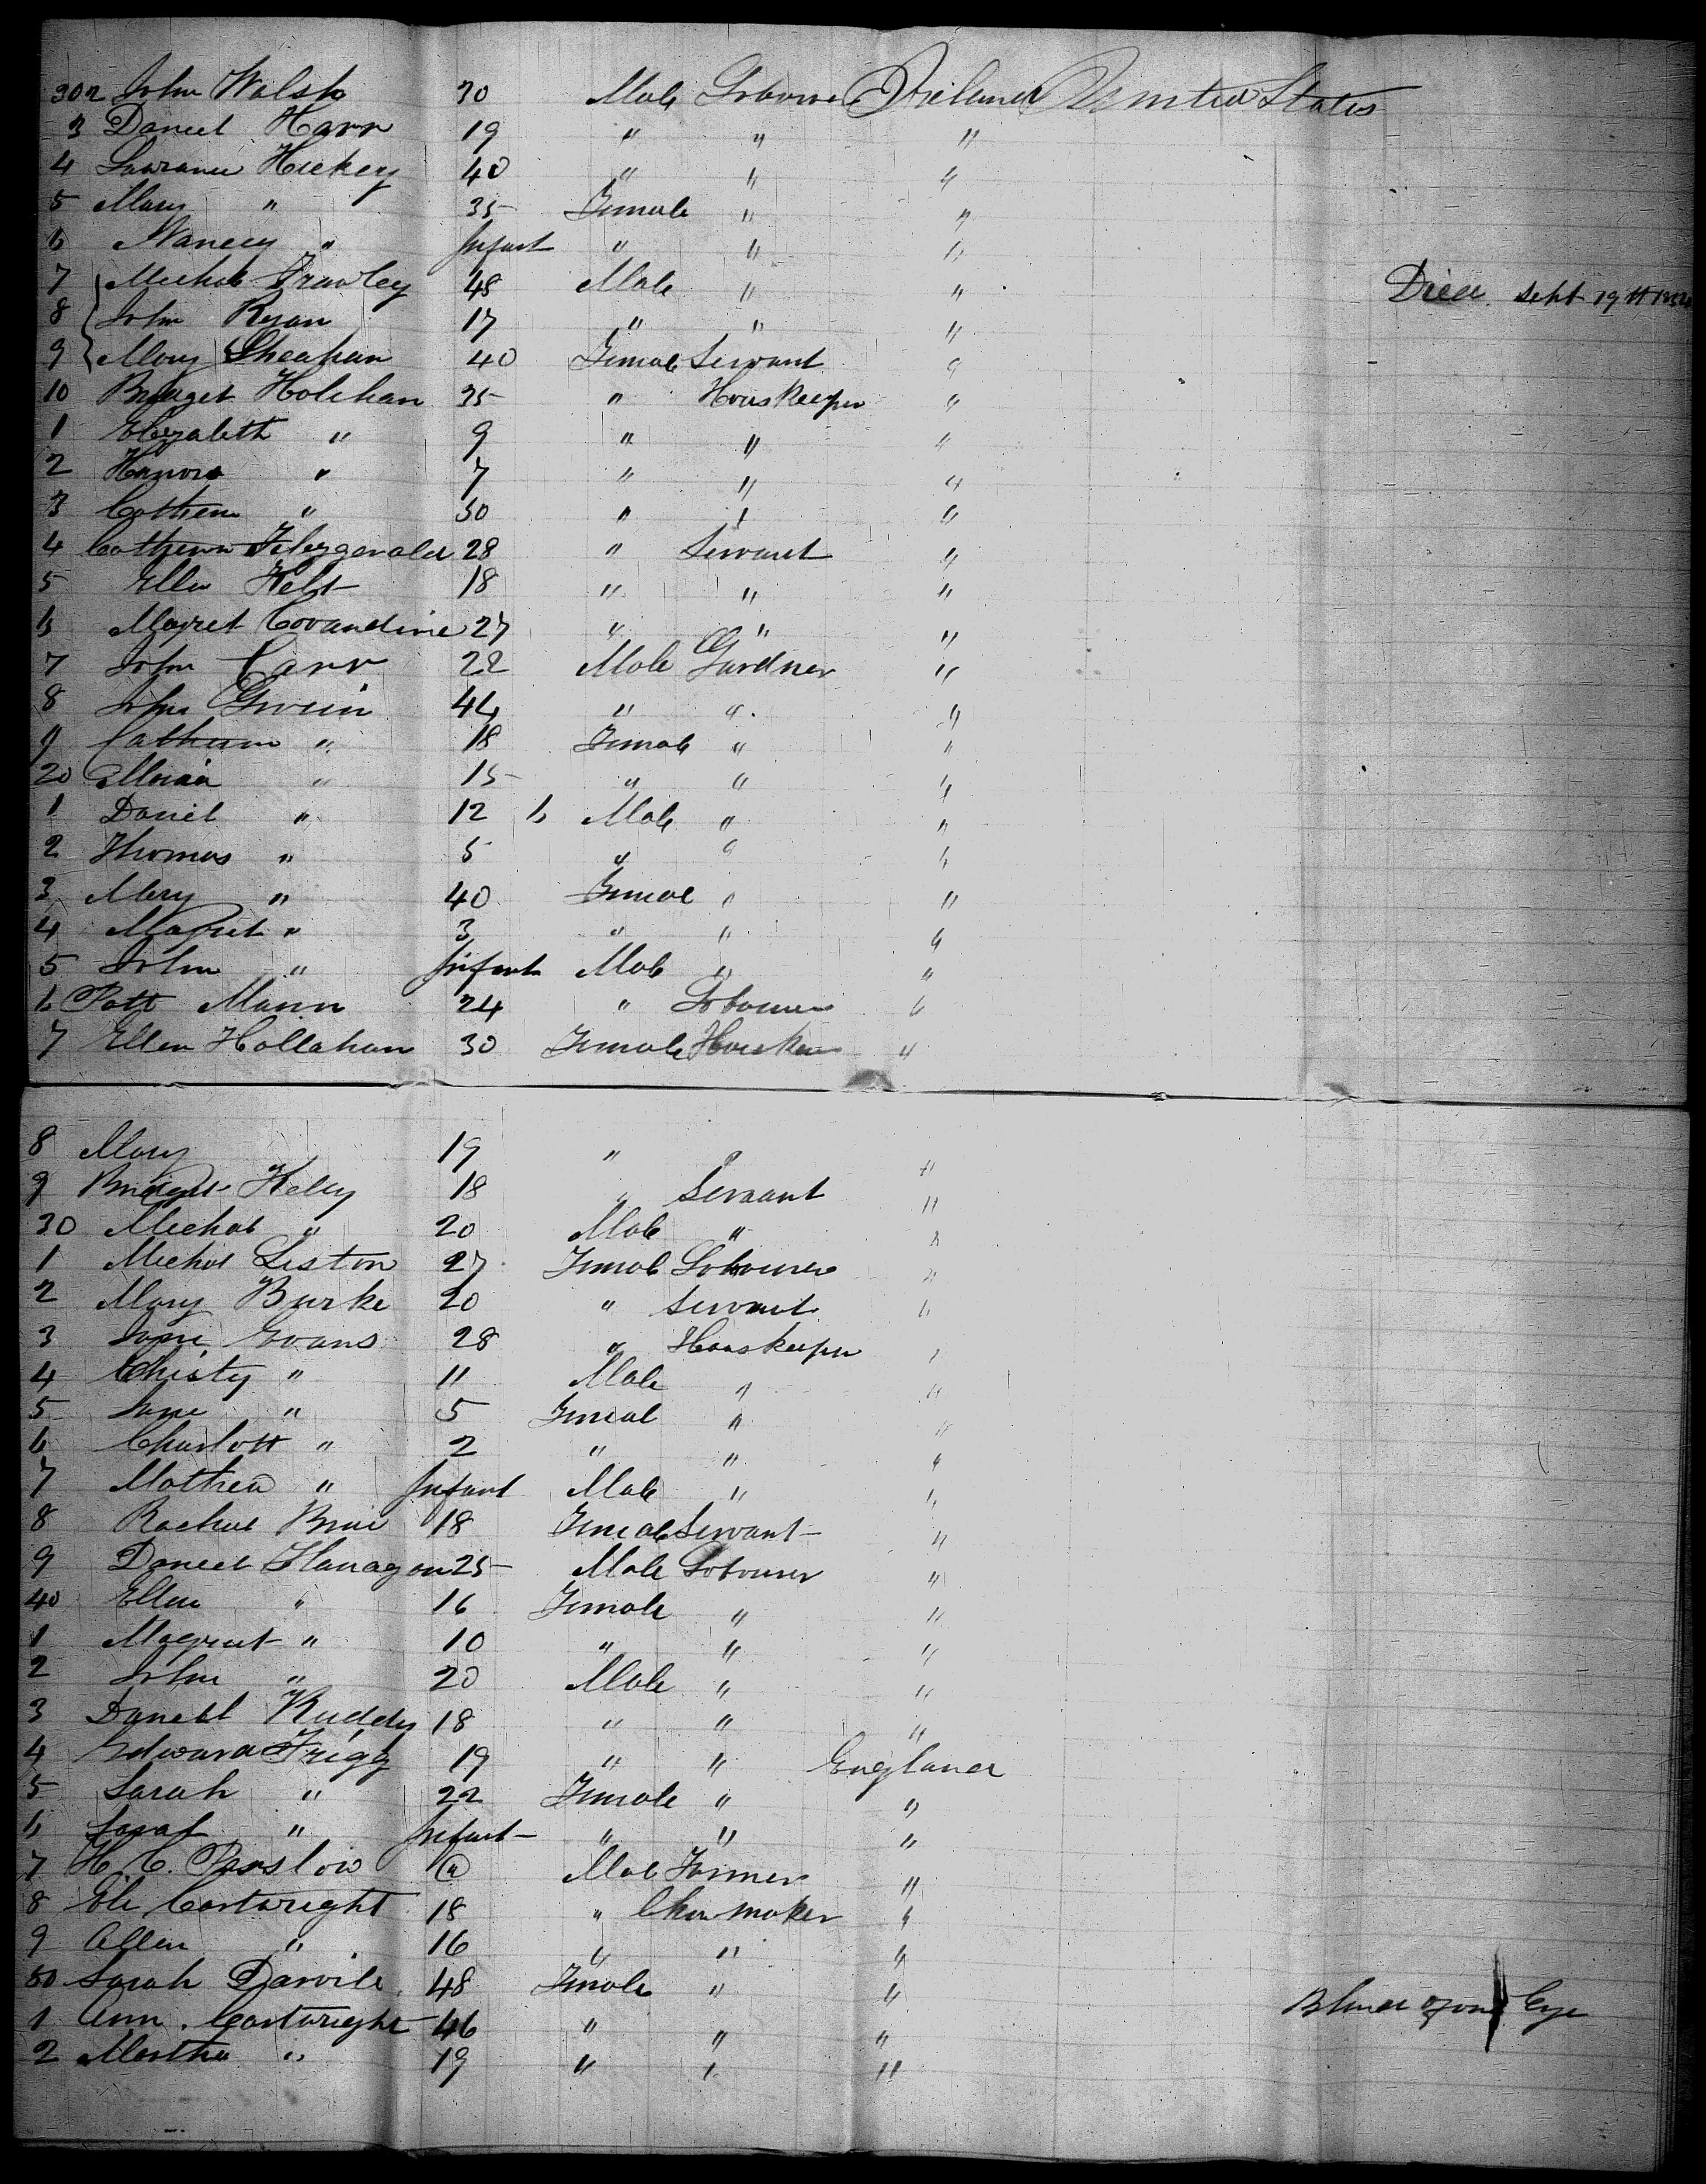 302 John Walsh 30 Male Labourer Ireland United States
3 Daniel Harr 19 " " "
4 Lawrance Hickey 40 " " "
5 Mary " 35 Female " "
6 Nancy " Infant " " "
7 Michal Frawley 48 Male " " Died Sept 19th
8 John Ryan 17 " " "
9 Mary Sheahan 40 Female Servant "
10 Bridget Holehan 35 " Houskeeper "
1 Elizabeth " 9 " " "
2 Hanora " 7 " " "
3 Cathern " 30 " " "
4 Cathern Fitzgerald 28 " Servant "
5 Ellen 18 " " "
6 Magret 27 " " "
7 John Carr 22 Male Gardner "
8 John 44 " " "
9 Cathern " 18 Female " "
20 Maria " 15 " " "
1 Daniel " 12 6 Male " "
2 Thomas " 5 " " "
3 Mary " 40 Female " "
4 Magret " 3 " " "
5 John " Infant Male " "
6 Patt Mann 24 " Labourer "
7 Ellen Hollahan 30 Female "
8 Mary 19 " " "
9 Bridget Kelly 18 " Servant "
30 Michal " 20 Male " "
1 Michal Liston 27 Female Labourer "
2 Mary Burke 20 " Servant "
3 Jane Evans 28 " Houskeeper "
4 Christy " 11 Male " "
5 Jane " 5 Female " "
6 Charlott " 2 " " "
7 Mathew " Infant Male " "
8 Rachel 18 Female Servant "
9 Daniel Flanagan 25 Male Labourer "
40 Ellen " 16 Female " "
1 Magreat " 10 " " "
2 John " 20 Male " "
3 Daniel Ruddy 18 " " "
4 Edward Trigg 19 " " England
5 Sarah " 22 Female " "
6 Sarah " Infant " " "
7 H. C. Parslow Male Farmer "
8 Eli Cartwright 18 " maker "
9 Allen " 16 " " "
50 Sarah Darvile 48 Female " " Blind of one Eye
1 Ann Cartwright 46 " " "
2 Martha " 19 " " "